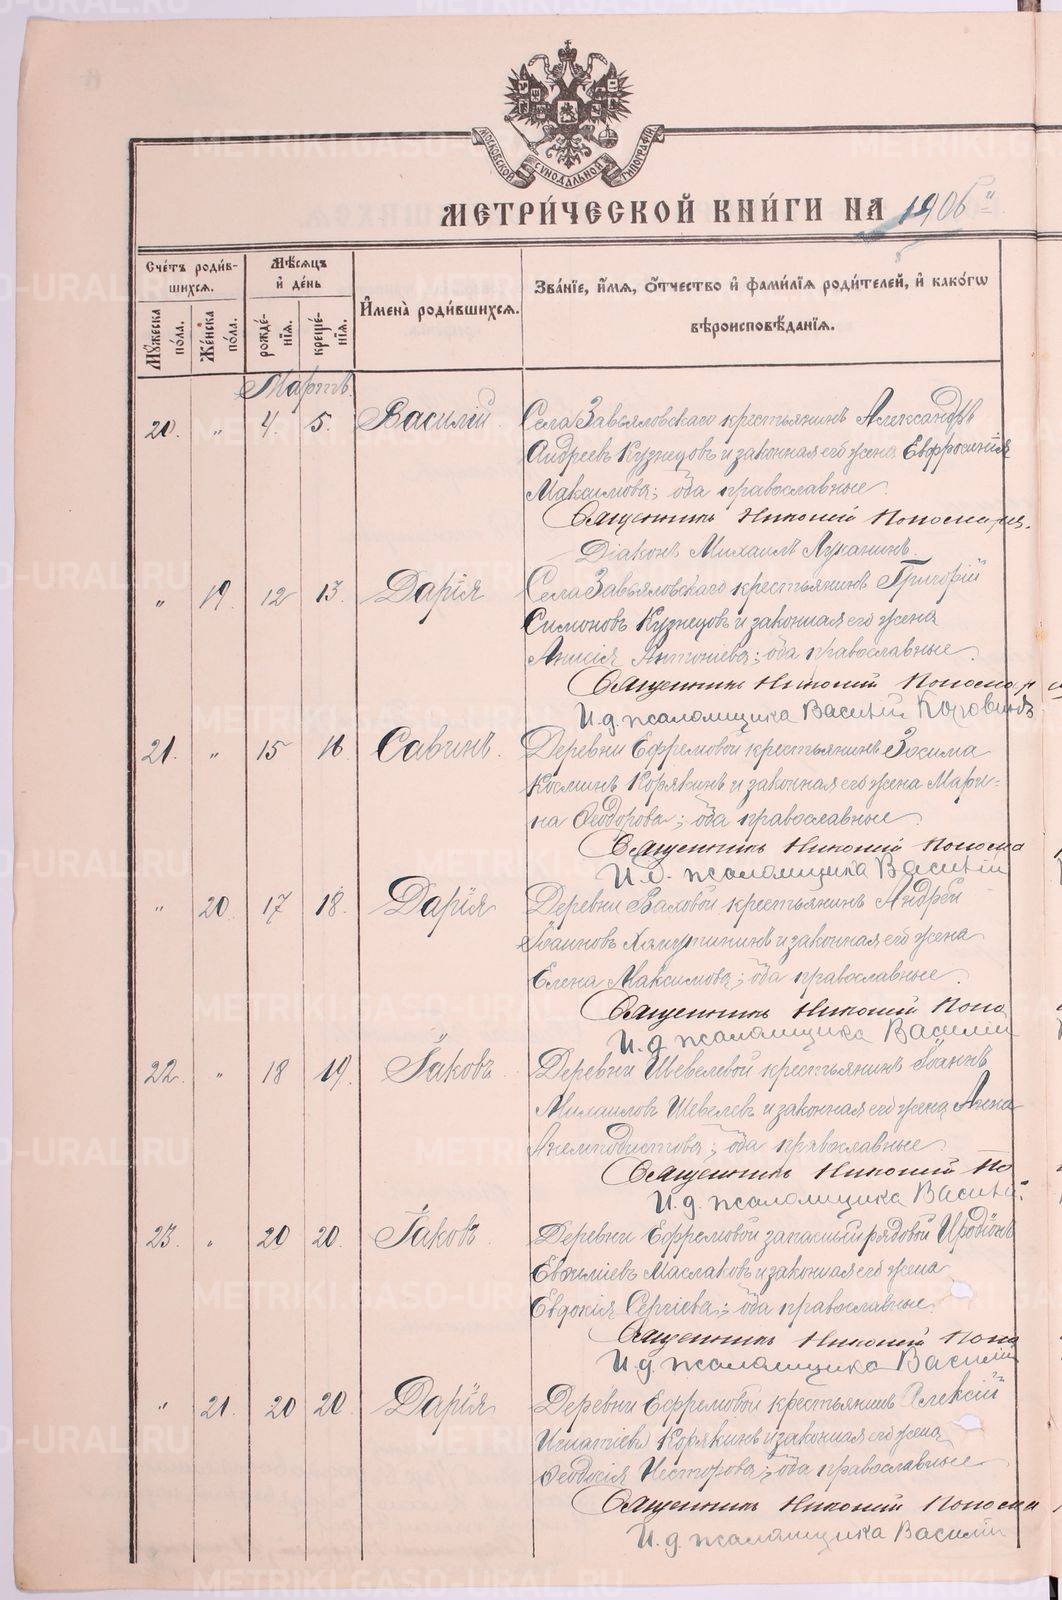 МОСКОВСКОЙ СѴНОДАЛЬНОЙ ТИПОГРАФІИ
МЕТРИ́ЧЕСКОЙ КНИ́ГИ НА 1906
Сче́тъ роди́в-
шихся.
Мѣ́сяцъ
и҆ де́нь
И҆мена̀ роди́вшихся.
Зва́нїе, и҆́мя, ѻ҆́тчество и҆ фами́лїя роди́телей, и҆ како́гѡ
вѣроисповѣ́данїя.
Мꙋ́жеска по́ла.
Же́нска по́ла.
рожде́-нїя.
креще́-нїя.
Мартъ.
20. " 4. 5. Василій. Села Завьяловскаго крестьянинъ Александръ
Андреевъ Кузнецовъ и законная его жена Евфросинія
Максимова; оба православные.
Священникъ Николай Пономар
Діаконъ Михаилъ Луканинъ.
" 19. 12 13. Дарія Села Завьяловскаго крестьянинъ Григорій
Симоновъ Кузнецовъ и законная его жена
Анисія Антоніева; оба православные.
Священникъ Николай Пономар
И. д. псаломщика Василій Коровинъ
21. " 15 16 Савинъ. Деревни Ефремовой крестьянинъ Зосима
Косминъ Корякинъ и законная его жена Мари-
на Ѳеодорова; оба православные.
Священникъ Николай Понома
И. д. псаломщика Василій
" 20. 17 18. Дарія Деревни крестьянинъ Андрей
Іоанновъ и законная его жена
Елена Максимова; оба православные.
Священникъ Николай Поно
И. д. псаломщика Василій
22. " 18 19. Іаковъ Деревни Шевелевой крестьянинъ Іоаннъ
Михаиловъ Шевелевъ и законная его жена Анна
Анемподистова; оба православные.
Священникъ Николай По
И. д. псаломщика Василій
23. " 20 20. Іаковъ. Деревни Ефремовой запасный рядовой Иродіонъ
Евфиміевъ Маслаковъ и законная его жена
Евдокія Сергіева; оба православные.
Священникъ Николай Поно
И. д. псаломщика Василій
" 21. 20 20. Дарія Деревни Ефремовой крестьянинъ Алексій
Игнатіевъ Корякинъ и законная его жена
Ѳеодосія Несторова; оба православные.
Священникъ Николай Понома
И. д. псаломщика Василій
METRIKI.GASO-URAL.RU